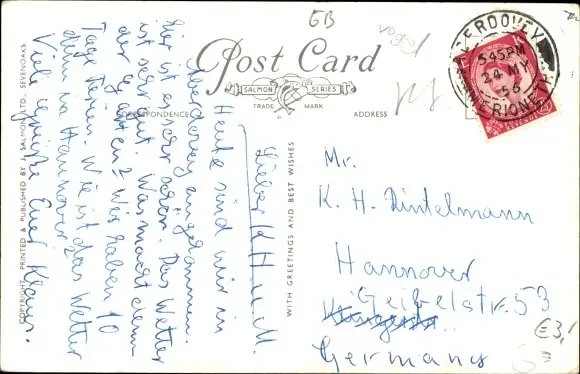 EB
vogel
Post Card
SALMON SERIES
TRADE MARK
CORRESPONDENCE
ADDRESS
ERDOVEY
545PM
24 MY
56
MERIONETH
COPYRIGHT. PRINTED & PUBLISHED BY SALMON LTD., SEVENOAKS
WITH GREETINGS AND BEST WISHES
Lieber K H u. M.
Heute sind wir in
Aberdovey angekommen.
Hier ist es sehr schön. Das Wetter
ist sehr gut. Was macht denn
der Garten? Wir haben 10
Tage Ferien. Wie ist das Wetter
denn in Hannover?
Viele Grüsse Euer Klaus.
Mr.
K. H. Dintelmann
Hannover
Geibelstr. 53
Germany
€3,